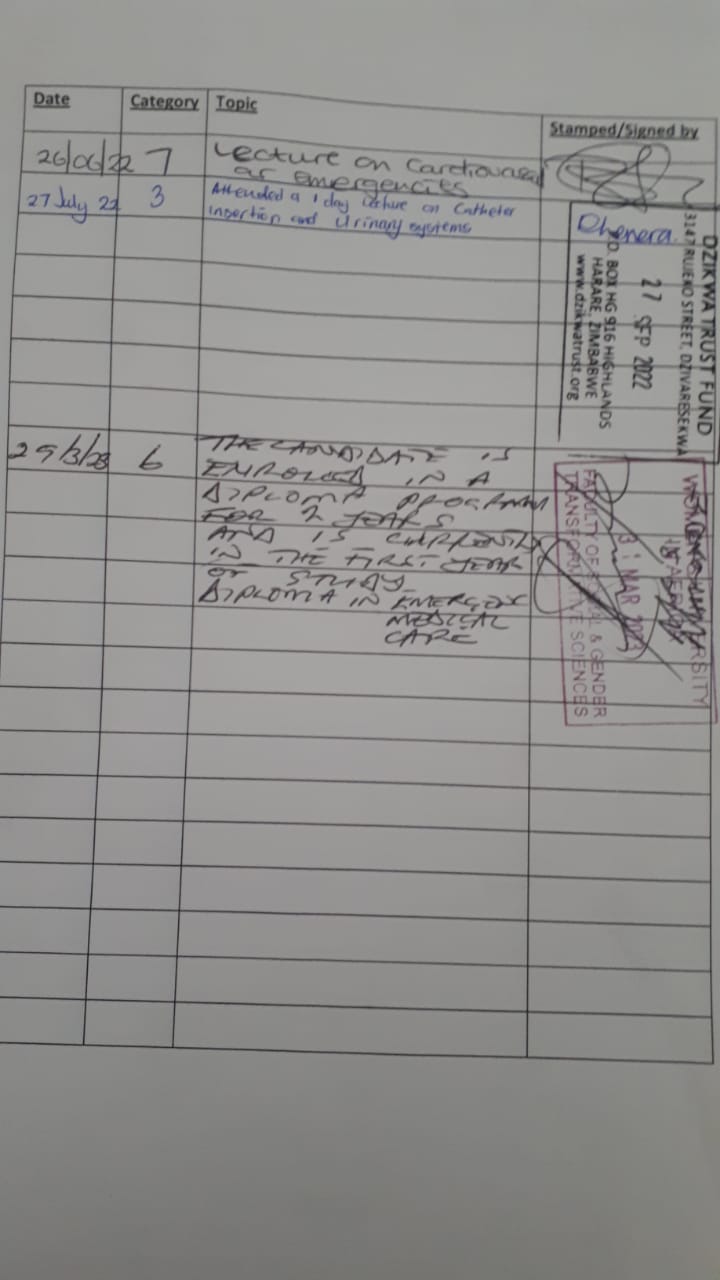 Date Category Topic Stamped/Signed by
26/06/22 7 Lecture on Cardiovascul
ar emergencies
27 July 22 3 Attended a 1 day lecture on Catheter
Insertion and Urinary systems
Dhenera
DZIKWA TRUST FUND
3147 RUJEKO STREET, DZIVARESEKWA
27 SEP 2022
P.O. BOX HG 916 HIGHLANDS
HARARE, ZIMBABWE
www.dzikwatrust.org
29/3/23 6 THE CANDIDATE IS
ENROLLED IN A
DIPLOMA PROGRAM
FOR 2 YEARS
AND IS CURRENTLY
IN THE FIRST YEAR
OF STUDY
DIPLOMA IN EMERGENCY
MEDICAL
CARE
UNIVERSITY
31 MAR 2023
FACULTY OF SOCIAL & GENDER
TRANSFORMATIVE SCIENCES